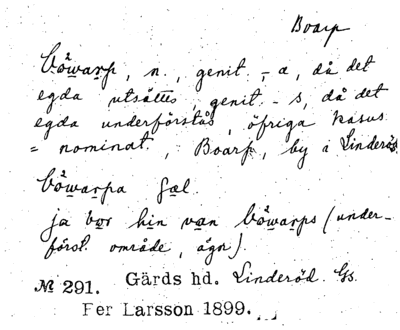 Boarp
bǻwarp, n., genit. -a, då det
egda utsättes, genit. -s, då det
egda underförstås, öfriga kasus
= nominat., Boarp, by i Linderöd.
bǻwarpa gæl.
ja bor hin van bǻwarps (under-
först. område, ägor).
№ 291. Gärds hd. Linderöd. Gs.
Per Larsson 1899.